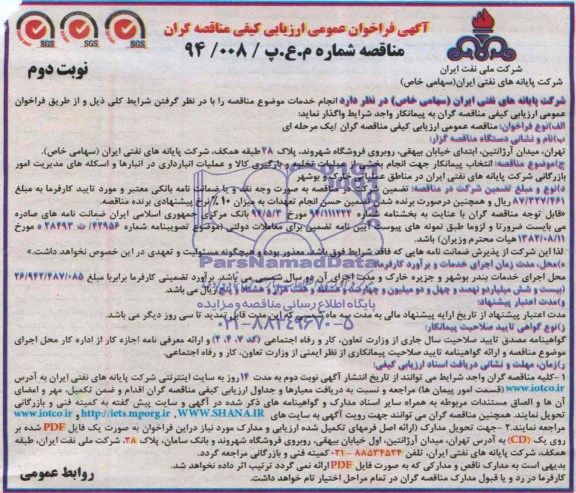 آگهی فراخوان عمومی ارزیابی کیفی مناقصه گران
مناقصه شماره م.ع.پ / ۰۰۸ / ۹۴
نوبت دوم
SGS SGS SGS
شرکت ملی نفت ایران
شرکت پایانه های نفتی ایران(سهامی خاص)
شرکت پایانه های نفتی ایران (سهامی خاص) در نظر دارد انجام خدمات موضوع مناقصه را با در نظر گرفتن شرایط کلی ذیل و از طریق فراخوان
عمومی ارزیابی کیفی مناقصه گران به پیمانکار واجد شرایط واگذار نماید:
الف)نوع فراخوان: مناقصه عمومی ارزیابی کیفی مناقصه گران /یک مرحله ای
ب)نام و نشانی دستگاه مناقصه گزار:
تهران، میدان آرژانتین، ابتدای خیابان بیهقی، روبروی فروشگاه شهروند، پلاک ۲۸ طبقه همکف، شرکت پایانه های نفتی ایران (سهامی خاص).
ج)موضوع مناقصه: انتخاب پیمانکار جهت انجام بخشی از عملیات تخلیه و بارگیری کالا و عملیات انبارداری در انبارها و اسکله های مدیریت امور
بازرگانی شرکت پایانه های نفتی ایران در مناطق عملیاتی خارک و بوشهر
د)نوع و مبلغ تضمین شرکت در مناقصه: تضمین شرکت در مناقصه به صورت وجه نقد و یا ضمانت نامه بانکی معتبر و مورد تایید کارفرما به مبلغ
ریال و همچنین درصورت برنده شدن تضمین حسن انجام تعهدات به میزان ۱۰٪ نرخ پیشنهادی برنده مناقصه.
«قابل توجه مناقصه گران با عنایت به بخشنامه شماره مورخ ۹۲/۵/۳ بانک مرکزی جمهوری اسلامی ایران ضمانت نامه های صادره
می بایست ضرورتا و لزوما طبق نمونه های پیوست آیین نامه تضمین برای معاملات دولتی (موضوع تصویبنامه شماره مورخ
۱۳۸۲/۰۸/۱۱ هیات محترم وزیران) باشد.
لذا این شرکت از پذیرش ضمانت نامه هایی که فاقد شرایط فوق باشد، معذور بوده و هیچگونه مسئولیت و تعهدی در این خصوص نخواهد داشت.»
ه)محل، مدت زمان اجرای خدمات و برآورد کارفرما:
محل اجرای خدمات بندر بوشهر و جزیره خارک و مدت اجرای آن دو سال شمسی می باشد. برآورد تضمینی کارفرما برابربا مبلغ ۲۶/۹۴۲/۴۸۷/۰۸۵
(بیست و شش میلیاردو نهصد و چهل و دو میلیون و چهارصد و هشتاد و هفت هزار و هشتاد و پنج) ریال می باشد.
و)مدت اعتبار پیشنهاد:
مدت اعتبار پیشنهاد از تاریخ ارایه پیشنهاد مالی به مدت سه ماه شمسی که این مدت قابل تمدید تا سی روز دیگر می باشد.
ز)نوع گواهی تایید صلاحیت پیمانکار:
گواهینامه مصدق تایید صلاحیت سال جاری از وزارت تعاون، کار و رفاه اجتماعی و ارائه معرفی نامه اجازه کار از اداره کار محل اجرای
موضوع مناقصه و ارائه گواهینامه تایید صلاحیت پیمانکاری از نظر ایمنی از وزارت تعاون، کار و رفاه اجتماعی.
ز)زمان، مهلت و نشانی دریافت اسناد ارزیابی کیفی:
۱-کلیه مناقصه گران واجد شرایط می توانند از تاریخ انتشار آگهی نوبت دوم به مدت ۱۴روز به سایت اینترنتی شرکت پایانه های نفتی ایران به آدرس
www.iotco.ir(قسمت امور پیمان ها) مراجعه و نسبت به دریافت معیارها و جداول ارزیابی کیفی مناقصه گران اقدام و ضمن تکمیل، مهر و امضای
آن ها و الصاق مستندات مربوطه به همراه سایر اسناد مدارک و گواهینامه های ذکر شده در آگهی و سایت پیش گفته به کمیته فنی و بازرگانی
تحویل نمایند. همچنین مناقصه گران می توانند جهت رویت آگهی به سایت های WWW.SHANA.IR ,http://iets.mporg.ir و www.iotco.ir
مراجعه نمایند.۲ -جهت تحویل مدارک (ارائه اصل فرمهای تکمیل شده ارزیابی و مدارک مورد نیاز دراین فراخوان به صورت یک فایل PDF شده بر
روی یک (CD) به آدرس تهران، میدان آرژانتین، اول خیابان بیهقی، روبروی فروشگاه شهروند و بانک سامان، پلاک ۲۸، شرکت ملی نفت ایران، طبقه
همکف، شرکت پایانه های نفتی ایران، تلفن ۸۸۵۳۴۵۳۴-۰۲۱ کمیته فنی و بازرگانی مراجعه گردد.
بدیهی است به مدارک ناقص و مدارکی که به صورت فایل PDF ارائه نمی گردد ترتیب اثر داده نخواهد شد.
کارفرما در رد و یا قبول مدارک مناقصه گران در تمام مراحل اختیار تام خواهد داشت.
روابط عمومی
ParsNamadData
پایگاه اطلاع رسانی مناقصه و مزایده
۰۲۱-۸۸۳۴۹۶۷۰-۵